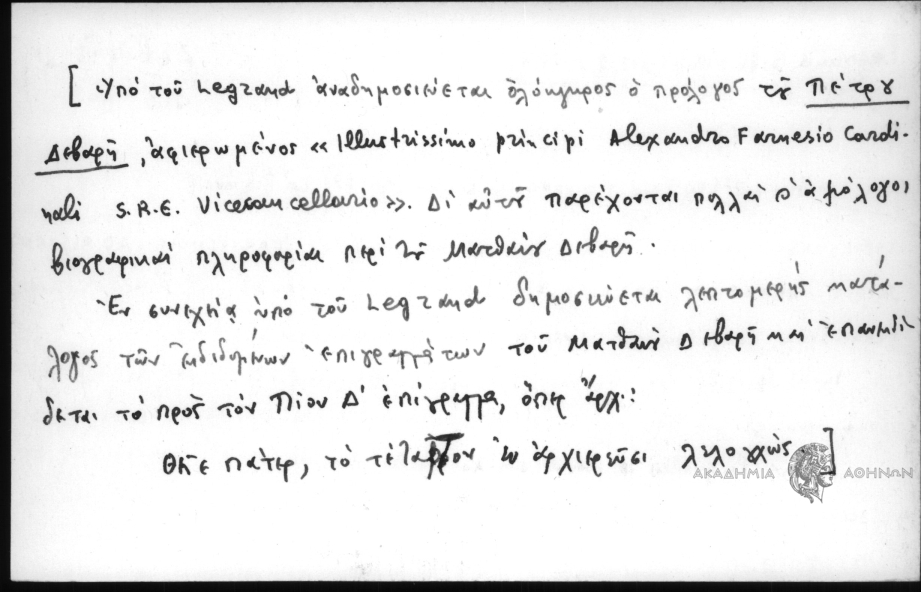 [Ὑπό τοῦ Legrand ἀναδημοσιεύεται ὁλόκληρος ὁ πρόλογος τοῦ Πέτρου
Δεβαρῆ, ἀφιερωμένος «Illustrissimo principi Alexandro Farnesio Cardi-
nali S.R.E. Vicecancellario». Δι' αὐτοῦ παρέχονται πολλαί ἀξιόλογοι
βιογραφικαί πληροφορίαι περί τοῦ Ματθαίου Δεβαρῆ.
Ἐν συνεχείᾳ ὑπό τοῦ Legrand δημοσιεύεται λεπτομερής κατά-
λογος τῶν ἐκδιδομένων ἐπιγραμμάτων τοῦ Ματθαίου Δεβαρῆ καί ἐπανεκδί
δεται τό πρός τόν Πίον Δ' ἐπίγραμμα, ὅπερ ἄρχ.:
Θεῖε πάτερ, τό τέταρτον ἐν ἀρχιερεῦσι λελογχώς.]
ΑΚΑΔΗΜΙΑ ΑΘΗΝΩΝ